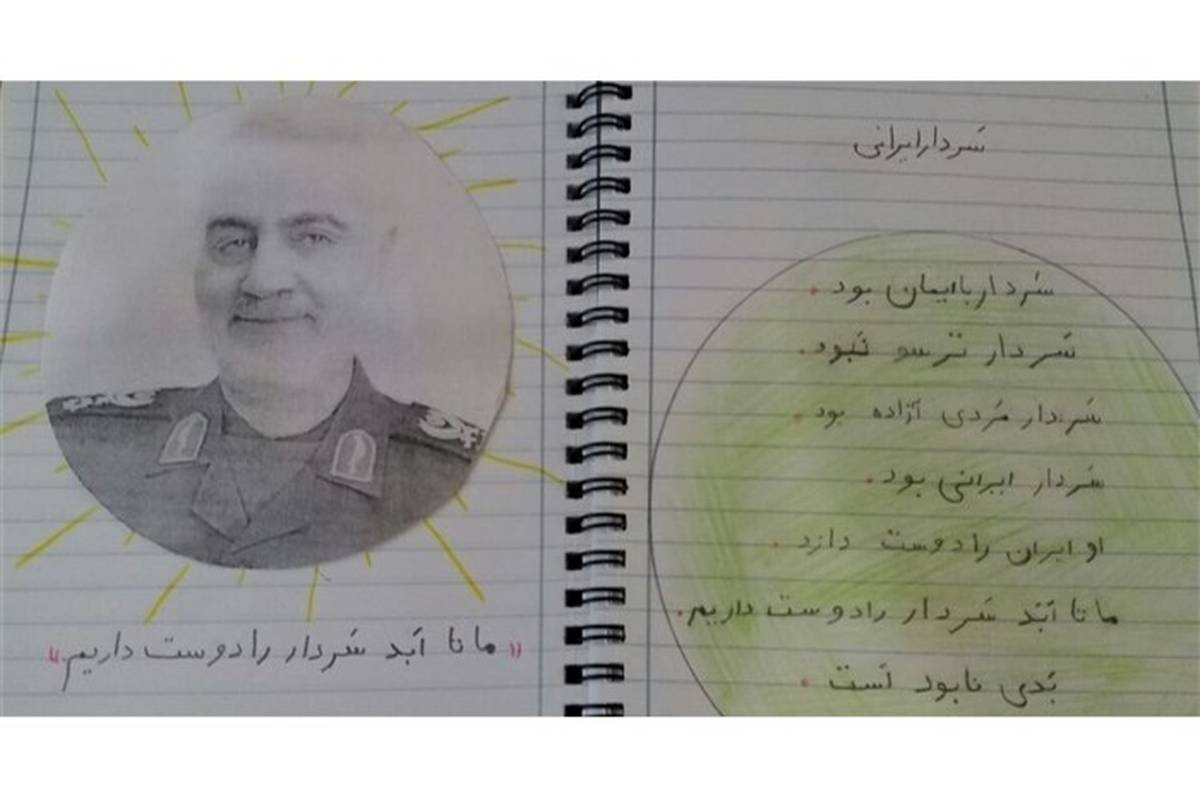 سَردار ایرانی
سَردار باایمان بود.
سَردار تَرسو نَبود.
سَردار مَردی آزاده بود.
سَردار ایرانی بود.
او ایران را دوست دارَد.
ما تا اَبَد سَردار را دوست داریم.
بَدی نابود اَست.
"ما تا اَبَد سَردار را دوست داریم."